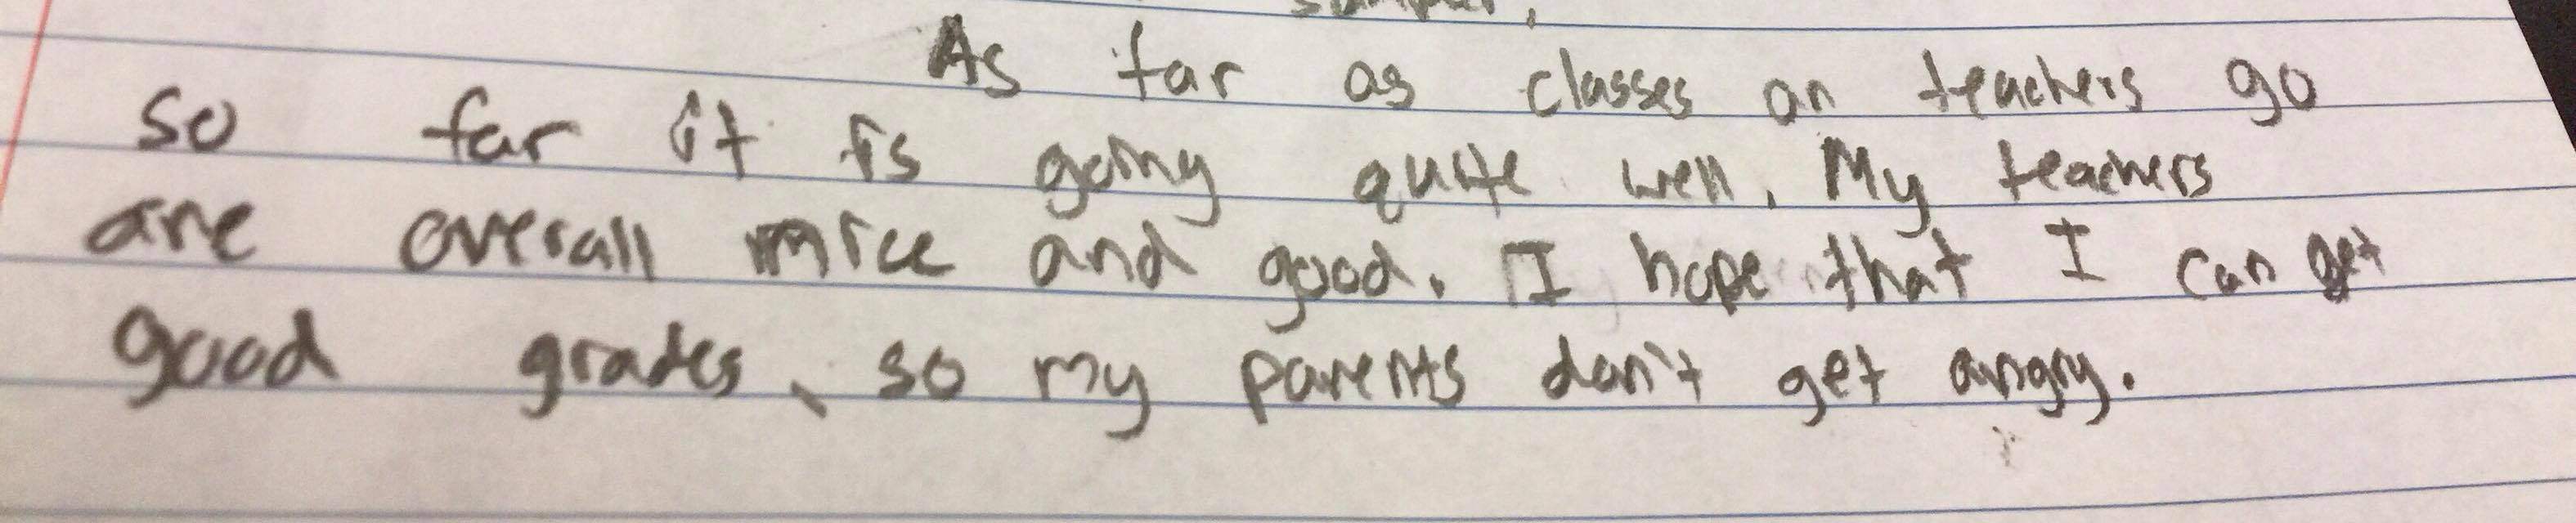 As far as classes an teachers go
so far it is going quite well. My teachers
are overall nice and good. I hope that I can get
good grades, so my parents don't get angry.